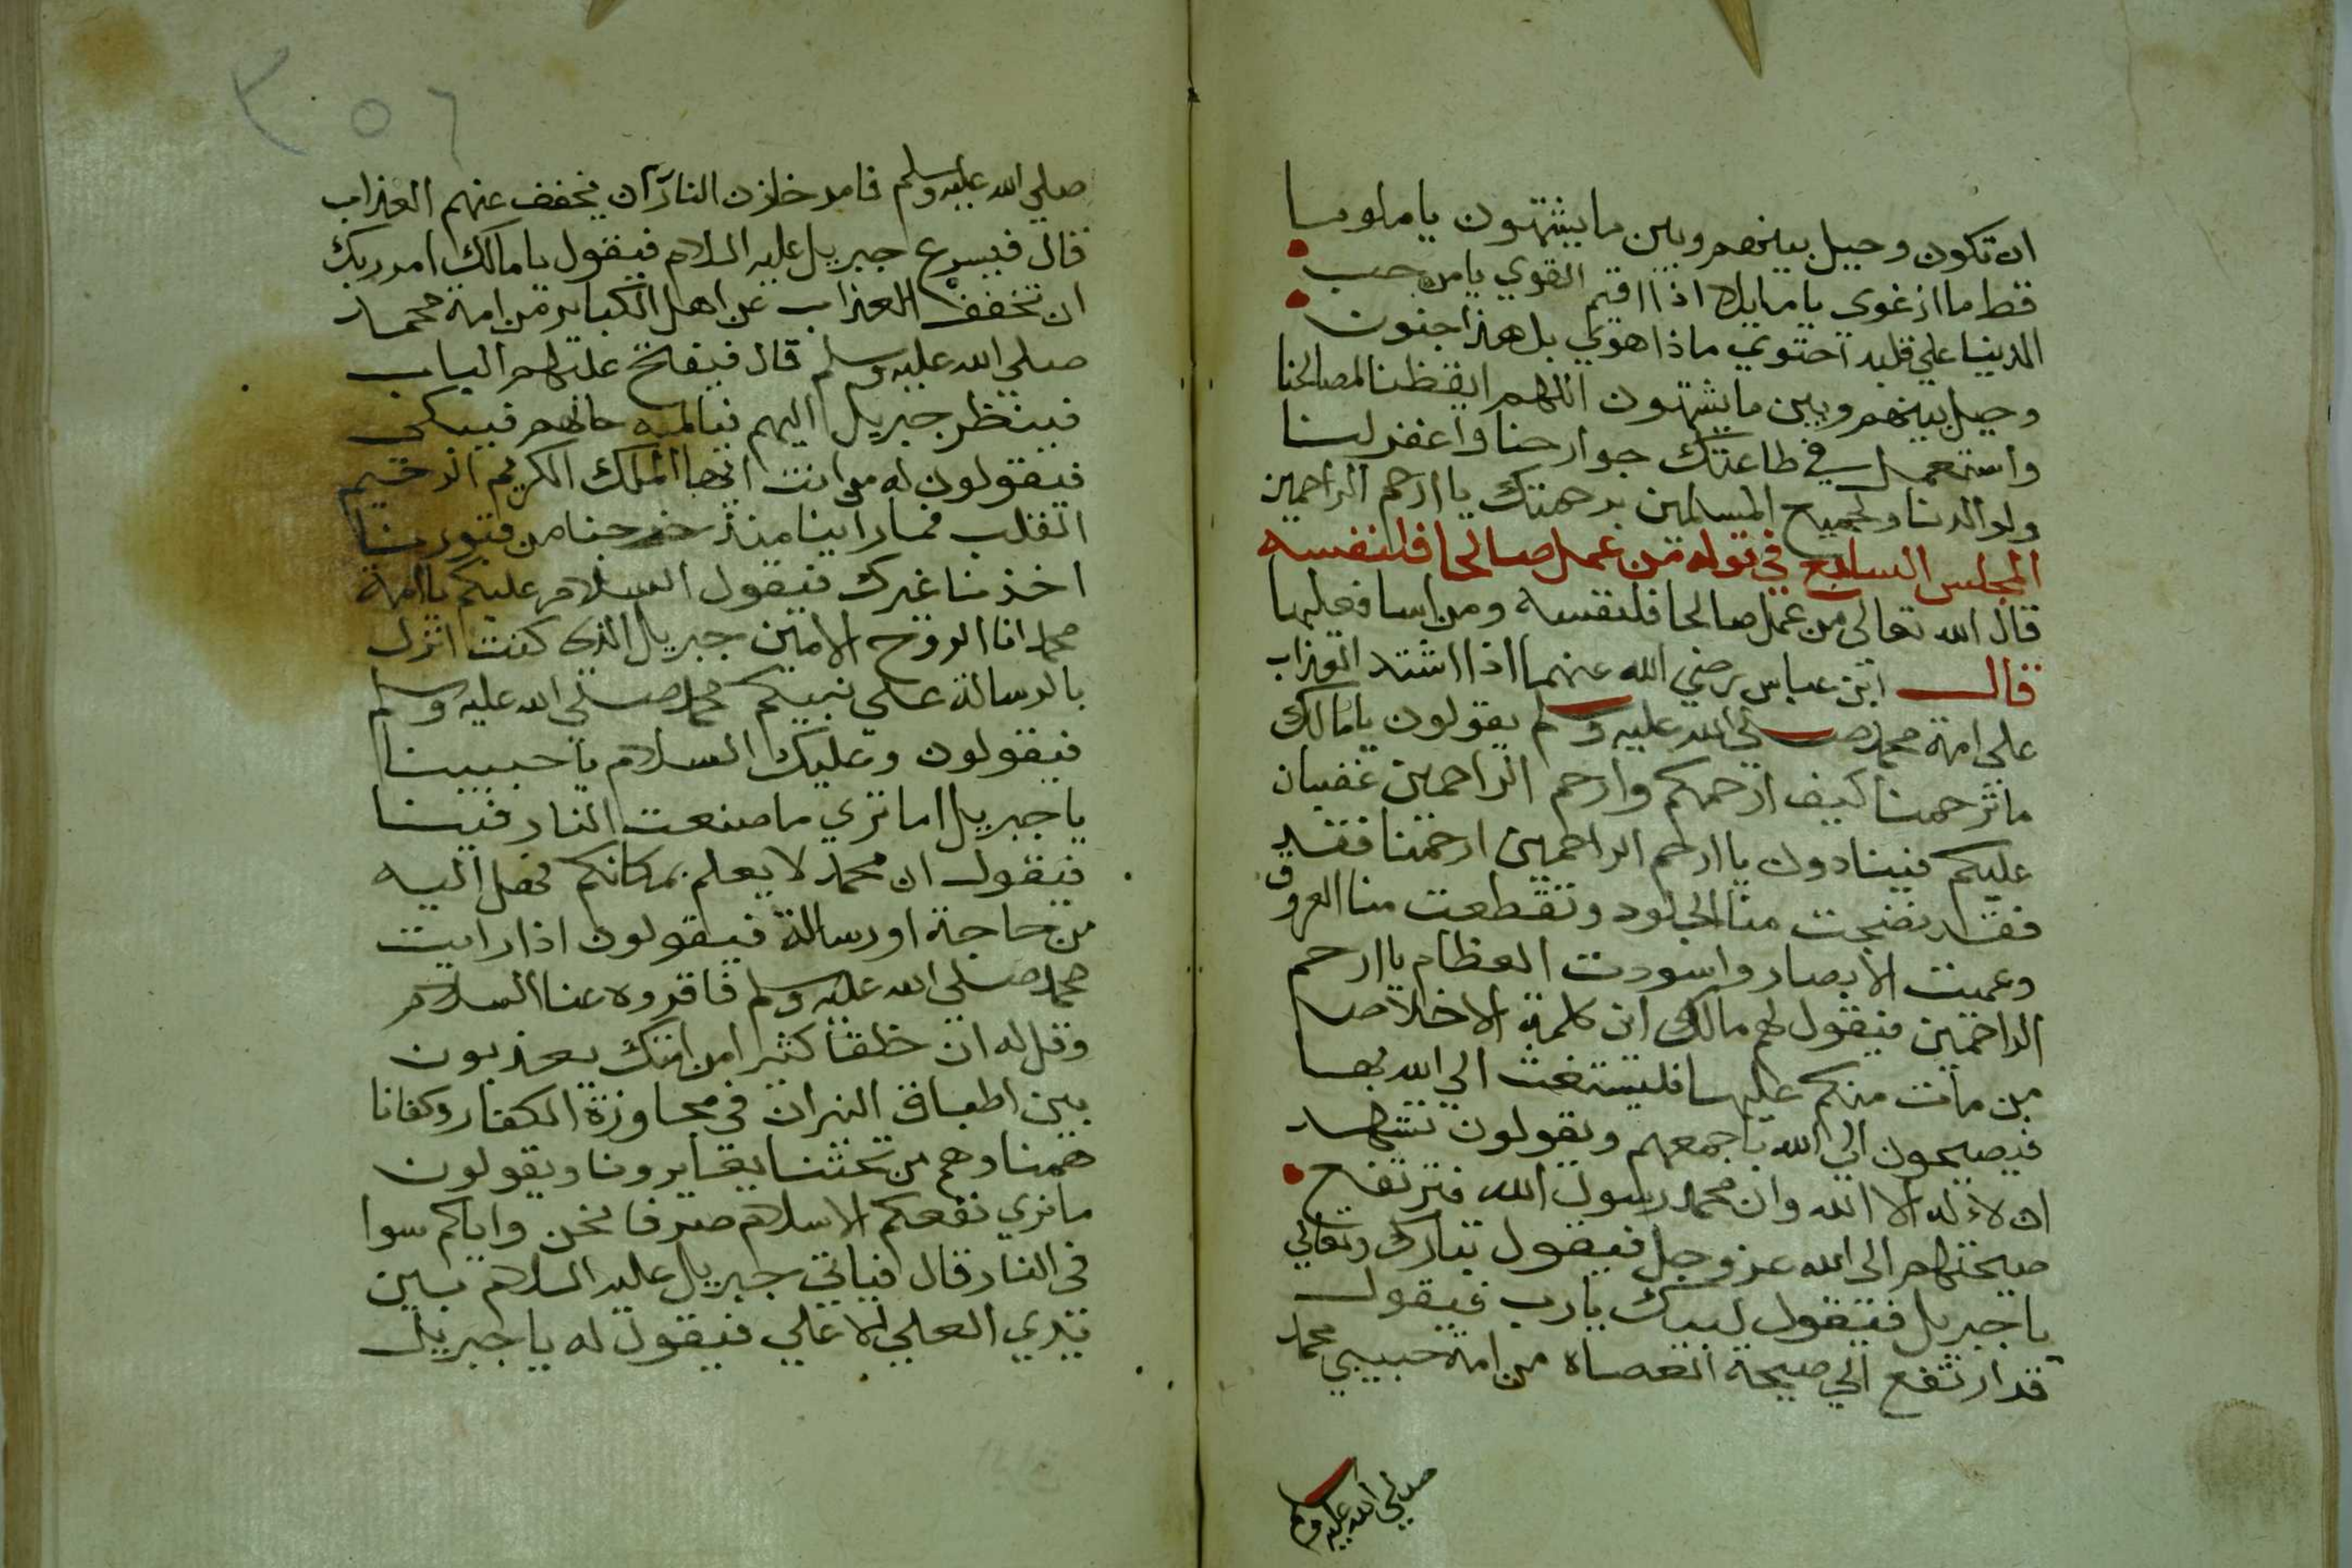 ان تكون وحيل بينهم وبين ما يشتهون يا ملوما
قط ما ازغوى يا مايلا اذا اقيم القوي يا من حب
الدنيا علي قلبه احتوي ماذا هوي بل هذا جنون
وحيل بينهم وبين ما يشتهون اللهم ايقظنا لمصالحنا
واستعمل في طاعتك جوارحنا واغفر لنا
ولوالدينا ولجميع المسلمين برحمتك يا ارحم الراحمين
المجلس السابع في قوله من عمل صالحا فلنفسه
قال الله تعالى من عمل صالحا فلنفسه ومن اسا فعليها
قال ابن عباس رضي الله عنهما اذا اشتد العذاب
علي امة محمد صلي الله عليه وسلم يقولون يا مالك
ما ترحمنا كيف ارحمكم وارحم الراحمين غضبان
عليكم فينادون يا ارحم الراحمين ارحمنا فقد
فقد نضجت منا الجلود وتقطعت منا العروق
وعميت الابصار واسودت العظام يا ارحم
الراحمين فيقول لهم مالك ان كلمة الاخلاص
من مات منكم عليها فليستغث الي الله بها
فيصيحون الي الله باجمعهم ويقولون نشهد
ان لا اله الا الله وان محمد رسول الله فترتفع
صيحتهم الى الله عز وجل فيقول تبارك وتعالي
يا جبريل فيقول لبيك يا رب فيقول
قد ارتفع الي صيحة العصاة من امة حبيبي محمد
صلي الله عليه وسلم
٣٥٦
صلي الله عليه وسلم فامر خازن النار ان يخفف عنهم العذاب
قال فيسرع جبريل عليه السلام فيقول يا مالك امر ربك
ان تخفف العذاب عن اهل الكباير من امة محمد
صلي الله عليه وسلم قال فيفتح عليهم الباب
فينظر جبريل اليهم فيالمه حالهم فيبكي
فيقولون له من انت ايها الملك الكريم الرحيم
القلب فما راينا منذ خرجنا من قبورنا
اخذ منا غيرك فيقول السلام عليكم يا امة
محمد انا الروح الامين جبريل الذى كنت انزل
بالرسالة علي نبيكم محمد صلي الله عليه وسلم
فيقولون وعليك السلام يا حبيبنا
يا جبريل اما تري ما صنعت النار فينا
فيقول ان محمد لا يعلم بمكانكم فهل اليه
من حاجة او رسالة فيقولون اذا رايت
محمد صلي الله عليه وسلم فاقروه عنا السلام
وقل له ان خلقا كثيرا من امتك يعذبون
بين اطباق النيران في مجاوزة الكفار وكفانا
همنا وهم من تحتنا يعايرونا ويقولون
ما نري نفعكم الاسلام صرفا نحن واياكم سوا
في النار قال فياتي جبريل عليه السلام بين
يدي العلي الاعلي فيقول له يا جبريل